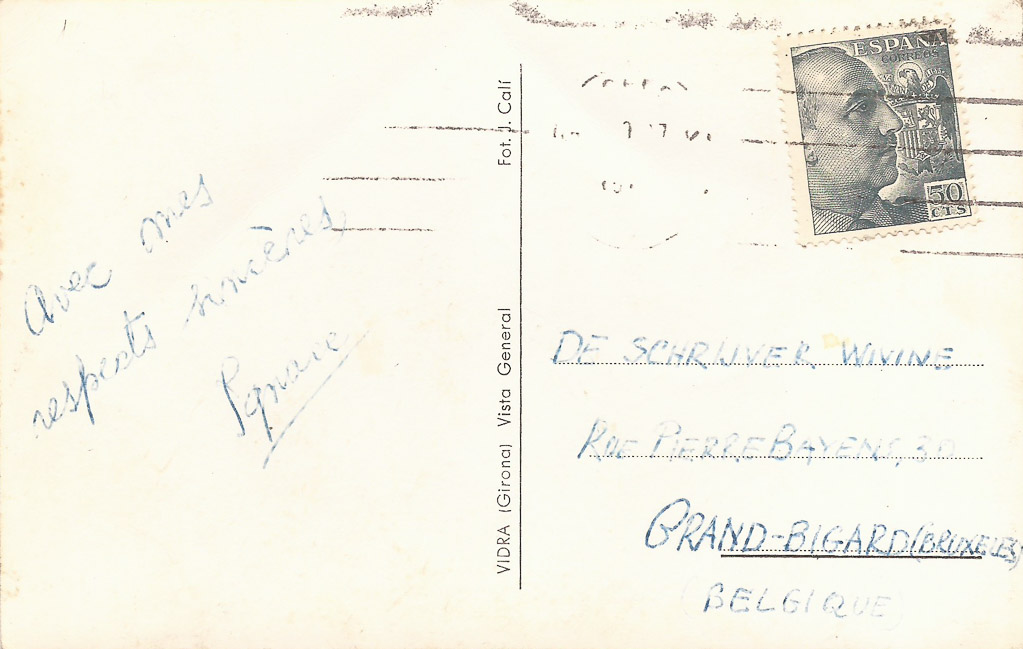 Avec mes
respects sincères
Fot. J. Calí
VIDRA (Girona) Vista General
ESPAÑA
CORREOS
50
CTS
DE SCHRIJVER WIVINE
RUE PIERRE BAYENS, 30
GRAND-BIGARD (BRUXELES)
(BELGIQUE)